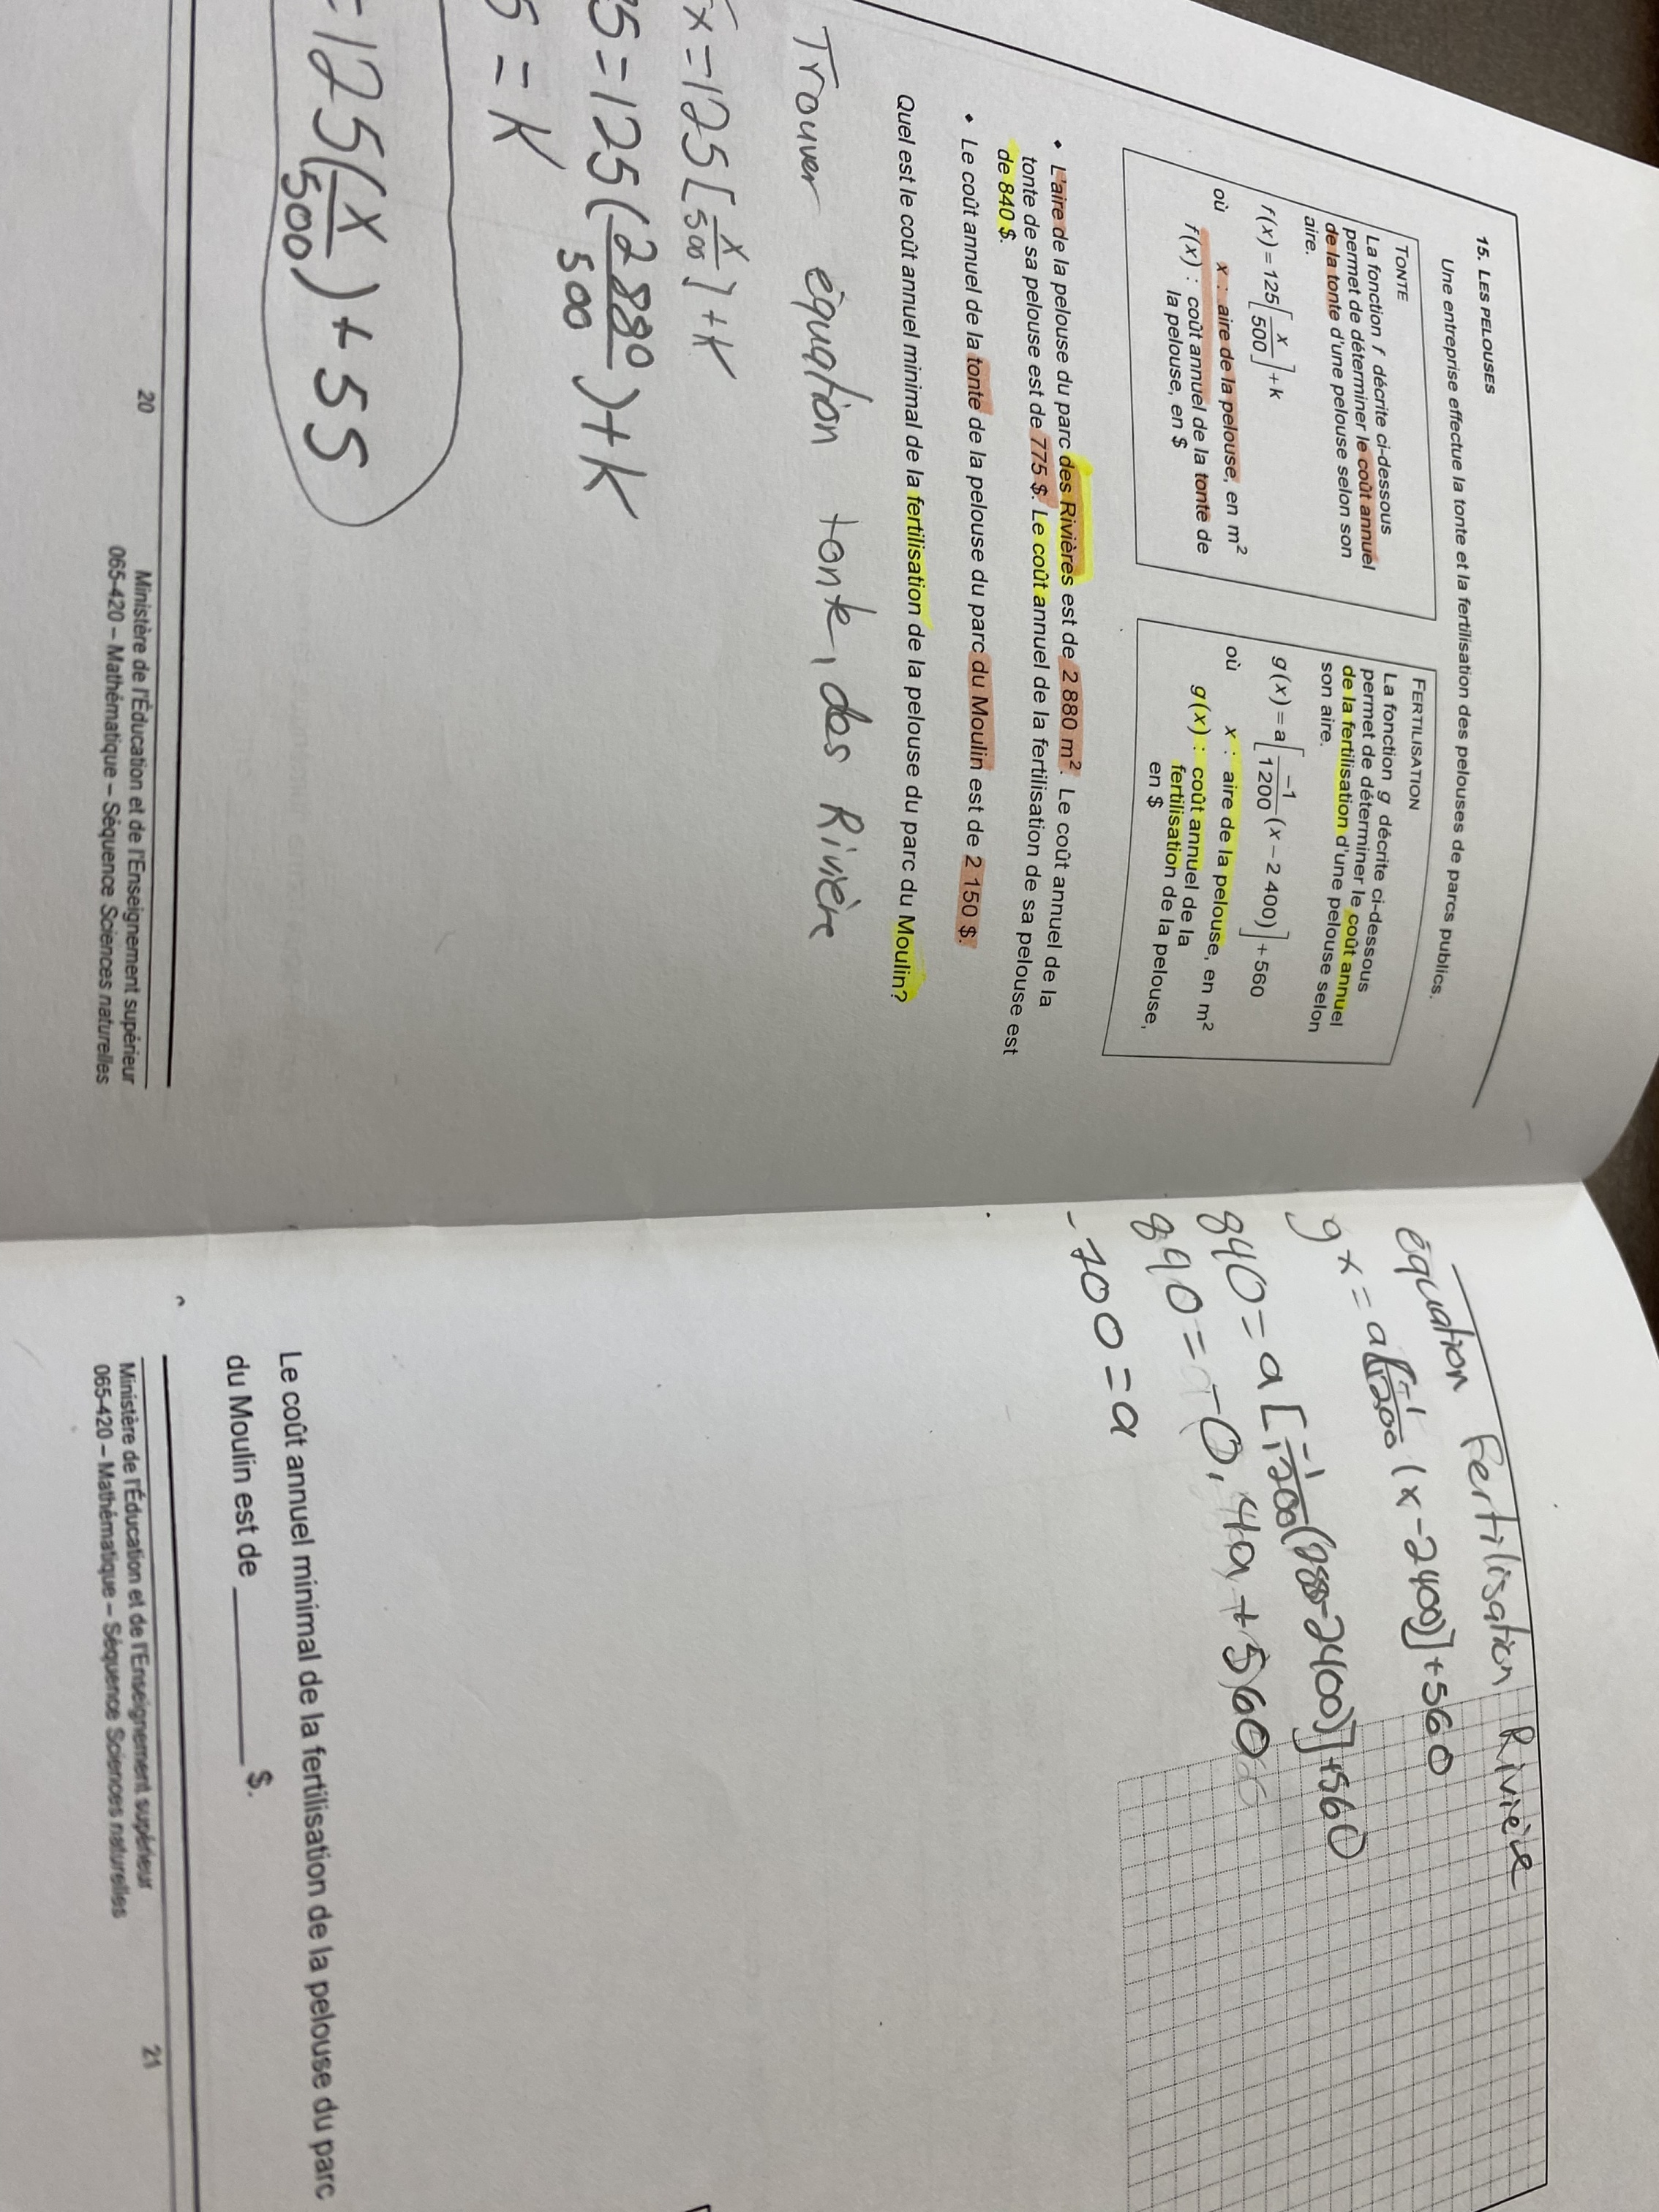 15. LES PELOUSES
Une entreprise effectue la tonte et la fertilisation des pelouses de parcs publics.
TONTE
La fonction f décrite ci-dessous
permet de déterminer le coût annuel
de la tonte d'une pelouse selon son
aire.
f(x) = 125[x/500] + k
où x : aire de la pelouse, en m²
f(x) : coût annuel de la tonte de
la pelouse, en $
FERTILISATION
La fonction g décrite ci-dessous
permet de déterminer le coût annuel
de la fertilisation d'une pelouse selon
son aire.
g(x) = a[-1/1200(x – 2 400)] + 560
où x : aire de la pelouse, en m²
g(x) : coût annuel de la
fertilisation de la pelouse,
en $
• L'aire de la pelouse du parc des Rivières est de 2 880 m². Le coût annuel de la
tonte de sa pelouse est de 775 $. Le coût annuel de la fertilisation de sa pelouse est
de 840 $.
• Le coût annuel de la tonte de la pelouse du parc du Moulin est de 2 150 $.
Quel est le coût annuel minimal de la fertilisation de la pelouse du parc du Moulin?
Trouver équation tonte, des Rivière
x = 125[x/500] + k
75 = 125(2880/500) + k
5 = k
= 125(x/500) + 55
20
Ministère de l'Éducation et de l'Enseignement supérieur
065-420 – Mathématique – Séquence Sciences naturelles
équation Fertilisation Rivière
gx = a[-1/1200(x-2400)] + 560
840 = a[-1/1200(2880-2400)] + 560
840 = -0,4a + 560
-700 = a
Le coût annuel minimal de la fertilisation de la pelouse du parc
du Moulin est de ________ $.
Ministère de l'Éducation et de l'Enseignement supérieur
065-420 – Mathématique – Séquence Sciences naturelles
21